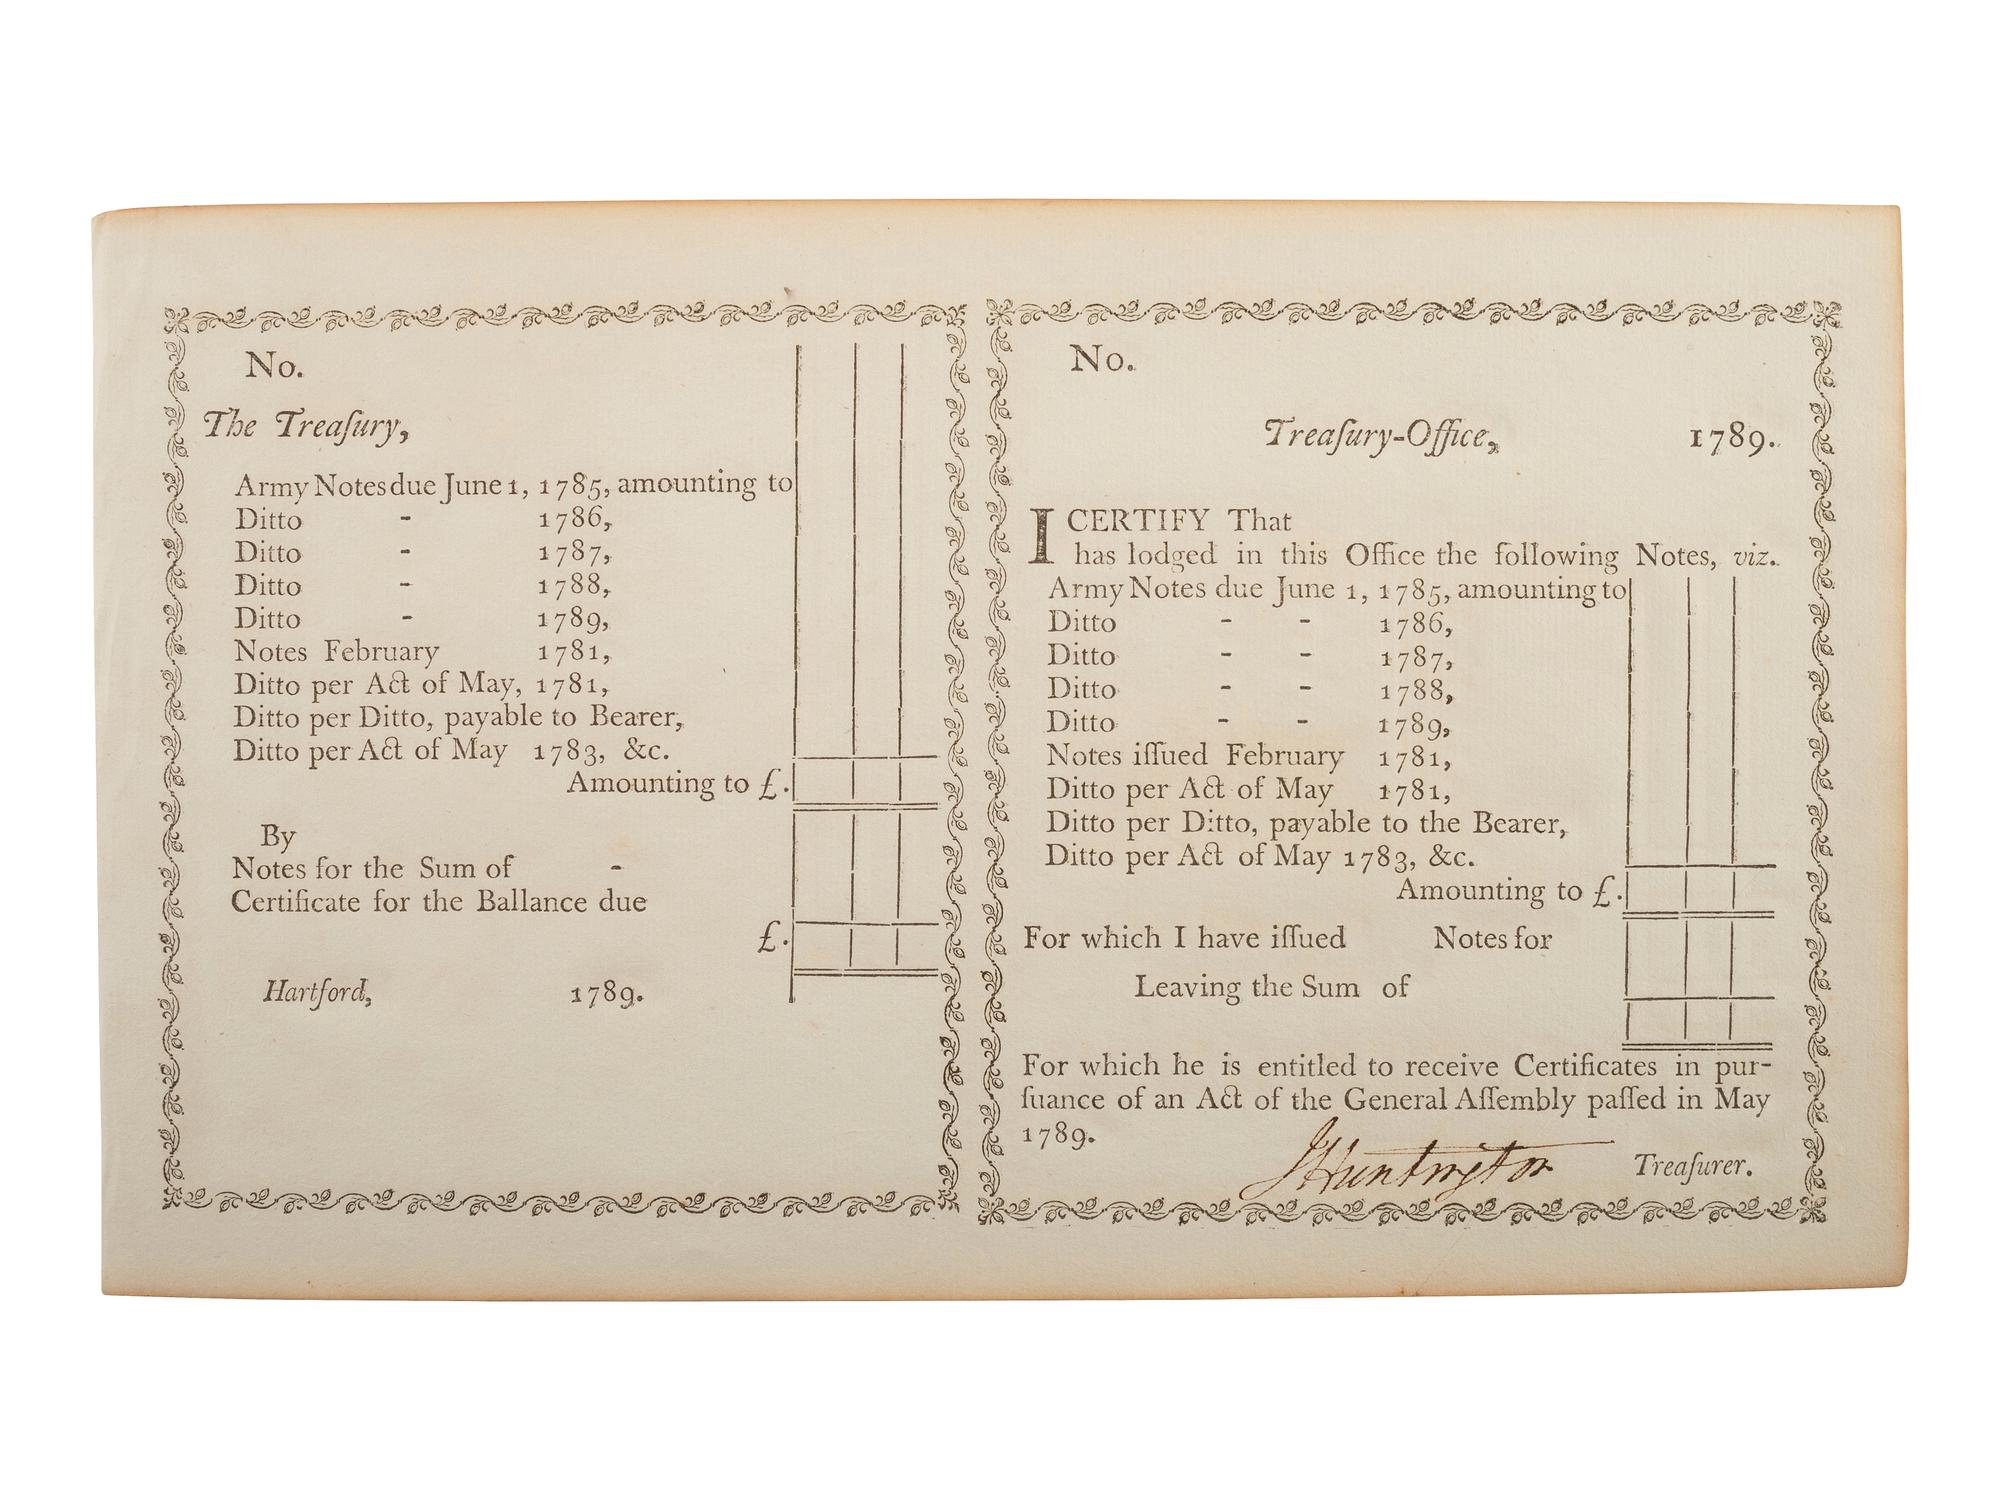 No.
The Treaſury,
Army Notes due June 1, 1785, amounting to
Ditto - 1786,
Ditto - 1787,
Ditto - 1788,
Ditto - 1789,
Notes February 1781,
Ditto per Act of May, 1781,
Ditto per Ditto, payable to Bearer,
Ditto per Act of May 1783, &c.
Amounting to £.
By
Notes for the Sum of -
Certificate for the Ballance due
£.
Hartford, 1789.
No.
Treaſury-Office, 1789.
I CERTIFY That
has lodged in this Office the following Notes, viz.
Army Notes due June 1, 1785, amounting to
Ditto - - 1786,
Ditto - - 1787,
Ditto - - 1788,
Ditto - - 1789,
Notes iſſued February 1781,
Ditto per Act of May 1781,
Ditto per Ditto, payable to the Bearer,
Ditto per Act of May 1783, &c.
Amounting to £.
For which I have iſſued Notes for
Leaving the Sum of
For which he is entitled to receive Certificates in pur-
ſuance of an Act of the General Aſſembly paſſed in May
1789.
J Huntington Treaſurer.